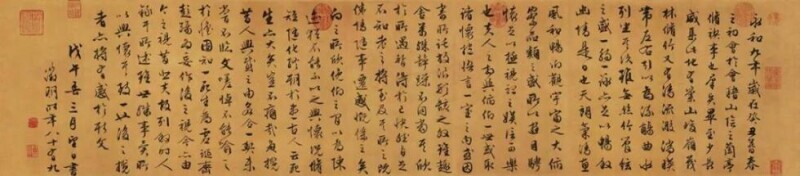 永和九年歲在癸丑暮春
之初會于會稽山陰之蘭亭
脩禊事也羣賢畢至少長
咸集此地有崇山峻領茂
林脩竹又有清流激湍暎
帶左右引以為流觴曲水
列坐其次雖無絲竹管絃
之盛一觴一詠亦足以暢叙
幽情是日也天朗氣清惠
風和暢仰觀宇宙之大俯
察品類之盛所以遊目騁
懷足以極視聽之娛信可樂
也夫人之相與俯仰一世或取
諸懷抱悟言一室之內或因
寄所託放浪形骸之外雖趣
舍萬殊靜躁不同當其欣
於所遇暫得於己快然自足
不知老之將至及其所之既
倦情隨事遷感慨係之矣
向之所欣俛仰之間以為陳
迹猶不能不以之興懷況脩
短隨化終期於盡古人云死
生亦大矣豈不痛哉每攬昔
人興感之由若合一契未
嘗不臨文嗟悼不能喻之
於懷固知一死生為虛誕齊
彭殤為妄作後之視今亦由
今之視昔悲夫故列叙時人
錄其所述雖世殊事異所
以興懷其致一也後之攬
者亦將有感於斯文
戊午春三月望日書
徵明時年八十有九